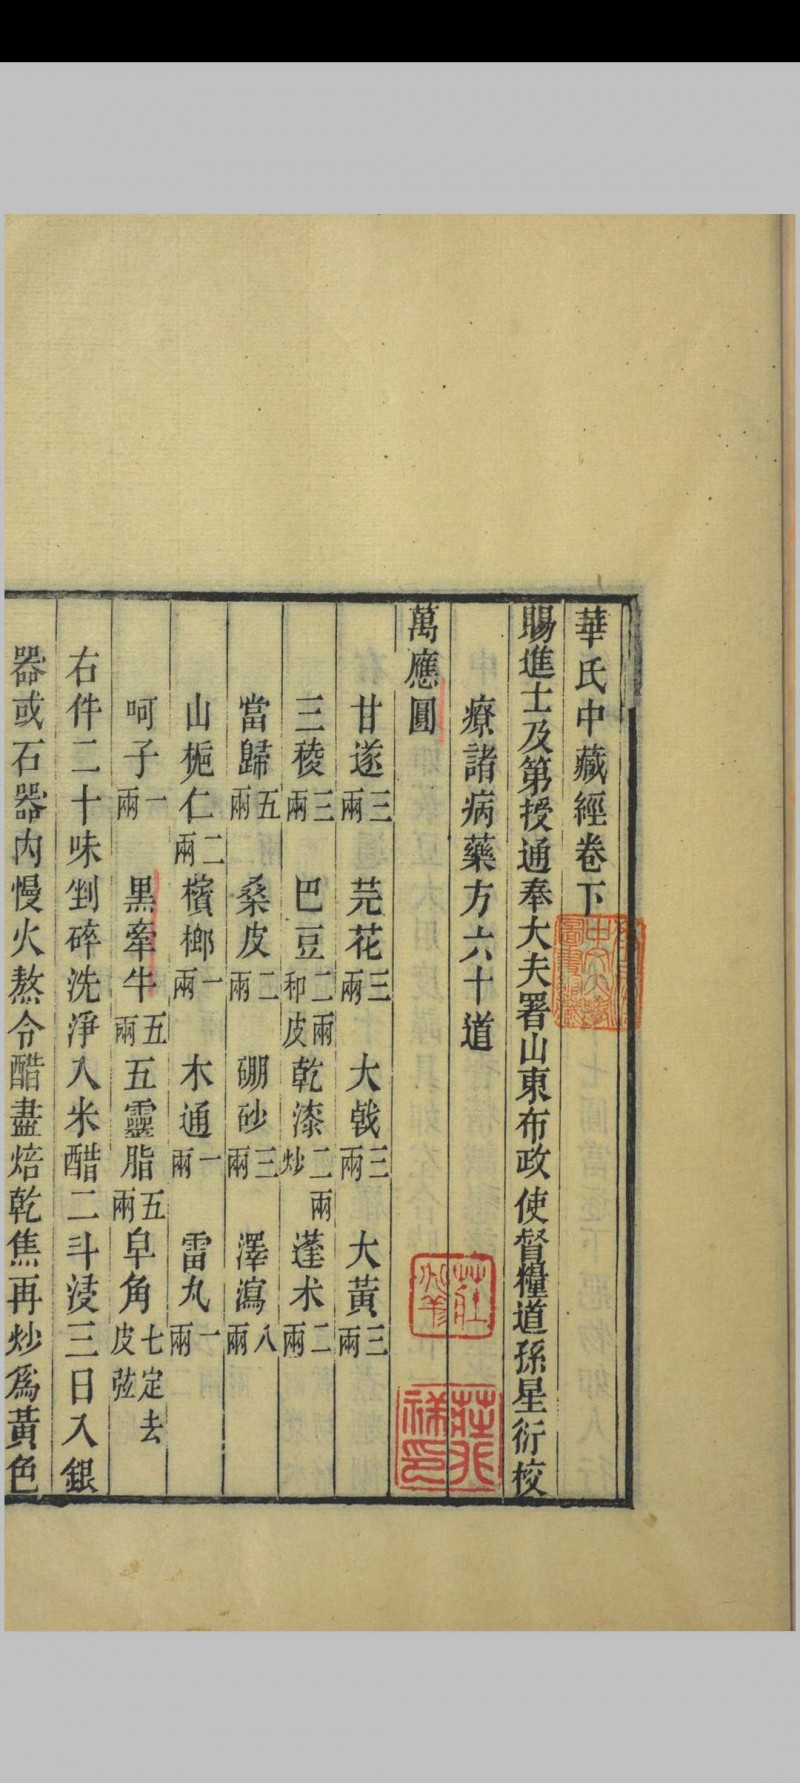 華氏中藏經卷下
賜進士及第授通奉大夫署山東布政使督糧道孫星衍校
療諸病藥方六十道
萬應圓
甘遂三兩 芫花三兩 大戟三兩 大黃三兩
三稜三兩 巴豆二兩和皮 乾漆二兩炒 蓬朮二兩
當歸五兩 桑皮二兩 硼砂三兩 澤瀉八兩
山梔仁二兩 檳榔一兩 木通一兩 雷丸一兩
呵子一兩 黑牽牛五兩 五靈脂五兩 皁角七定去皮弦
右件二十味剉碎洗淨入米醋二斗浸三日入銀
器或石器內慢火熬令醋盡焙乾焦再炒爲黃色